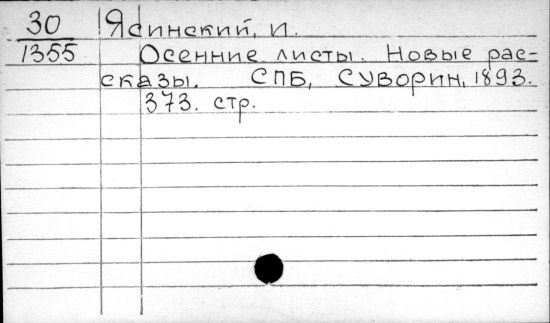 30 Ясинский, И.
1355 Осенние листы. Новые рас-
сказы. СПБ, Суворин, 1893.
373. стр.